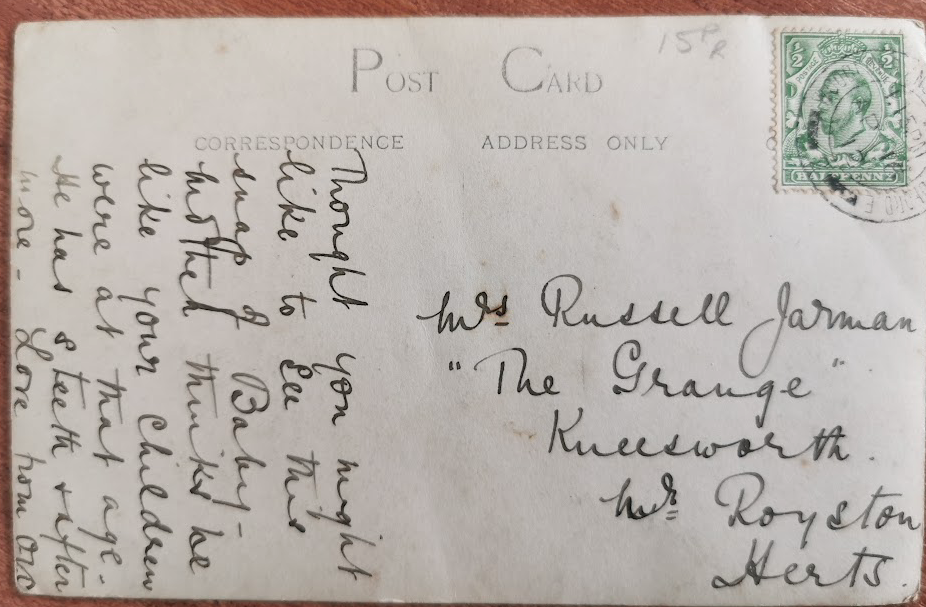 15 P/R
POST CARD
CORRESPONDENCE
ADDRESS ONLY
½ ½
POSTAGE
HALFPENNY
Thought you might
like to see this
snap of Baby -
mother thinks he
like your children
were at that age.
He has 8 teeth &
more - Love from
Mrs Russell Jarman
"The Grange"
Kneesworth.
Nr Royston
Herts.